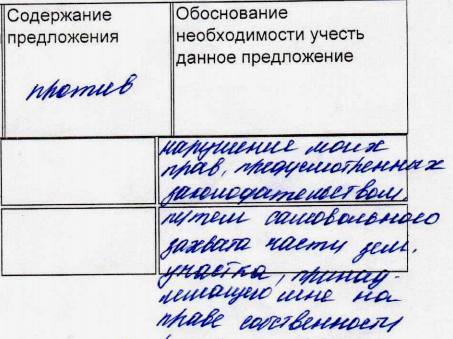 Содержание
предложения
против
Обоснование
необходимости учесть
данное предложение
нарушение моих
прав, предусмотренных
законодательством,
путем самовольного
захвата части зем.
участка, принад-
лежащего мне на
праве собственности